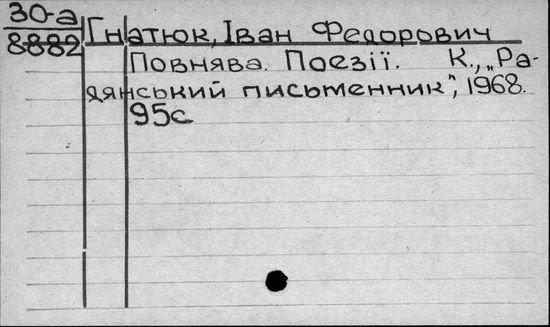 30-а
8882
Гнатюк, Іван Федорович
Повнява. Поезії. К., „Ра-
дянський письменник", 1968.
95с.